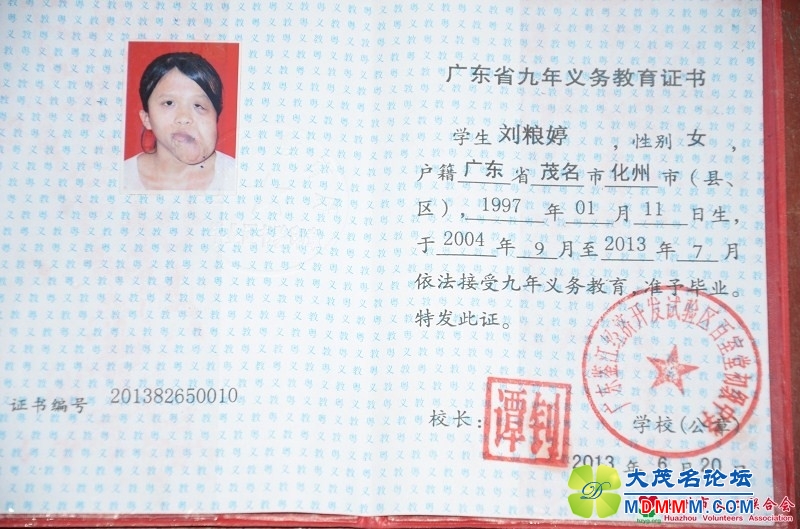 广东省九年义务教育证书
学生 刘粮婷 ，性别 女 ，
户籍 广东 省 茂名 市 化州 市（县、
区），1997 年 01 月 11 日生，
于 2004 年 9 月至 2013 年 7 月
依法接受九年义务教育，准予毕业。
特发此证。
证书编号 201382650010
校长：
谭钊
学校(公章)
2013 年 6 月 20
大茂名论坛
MDMMM.COM
Huazhou Volunteers Association